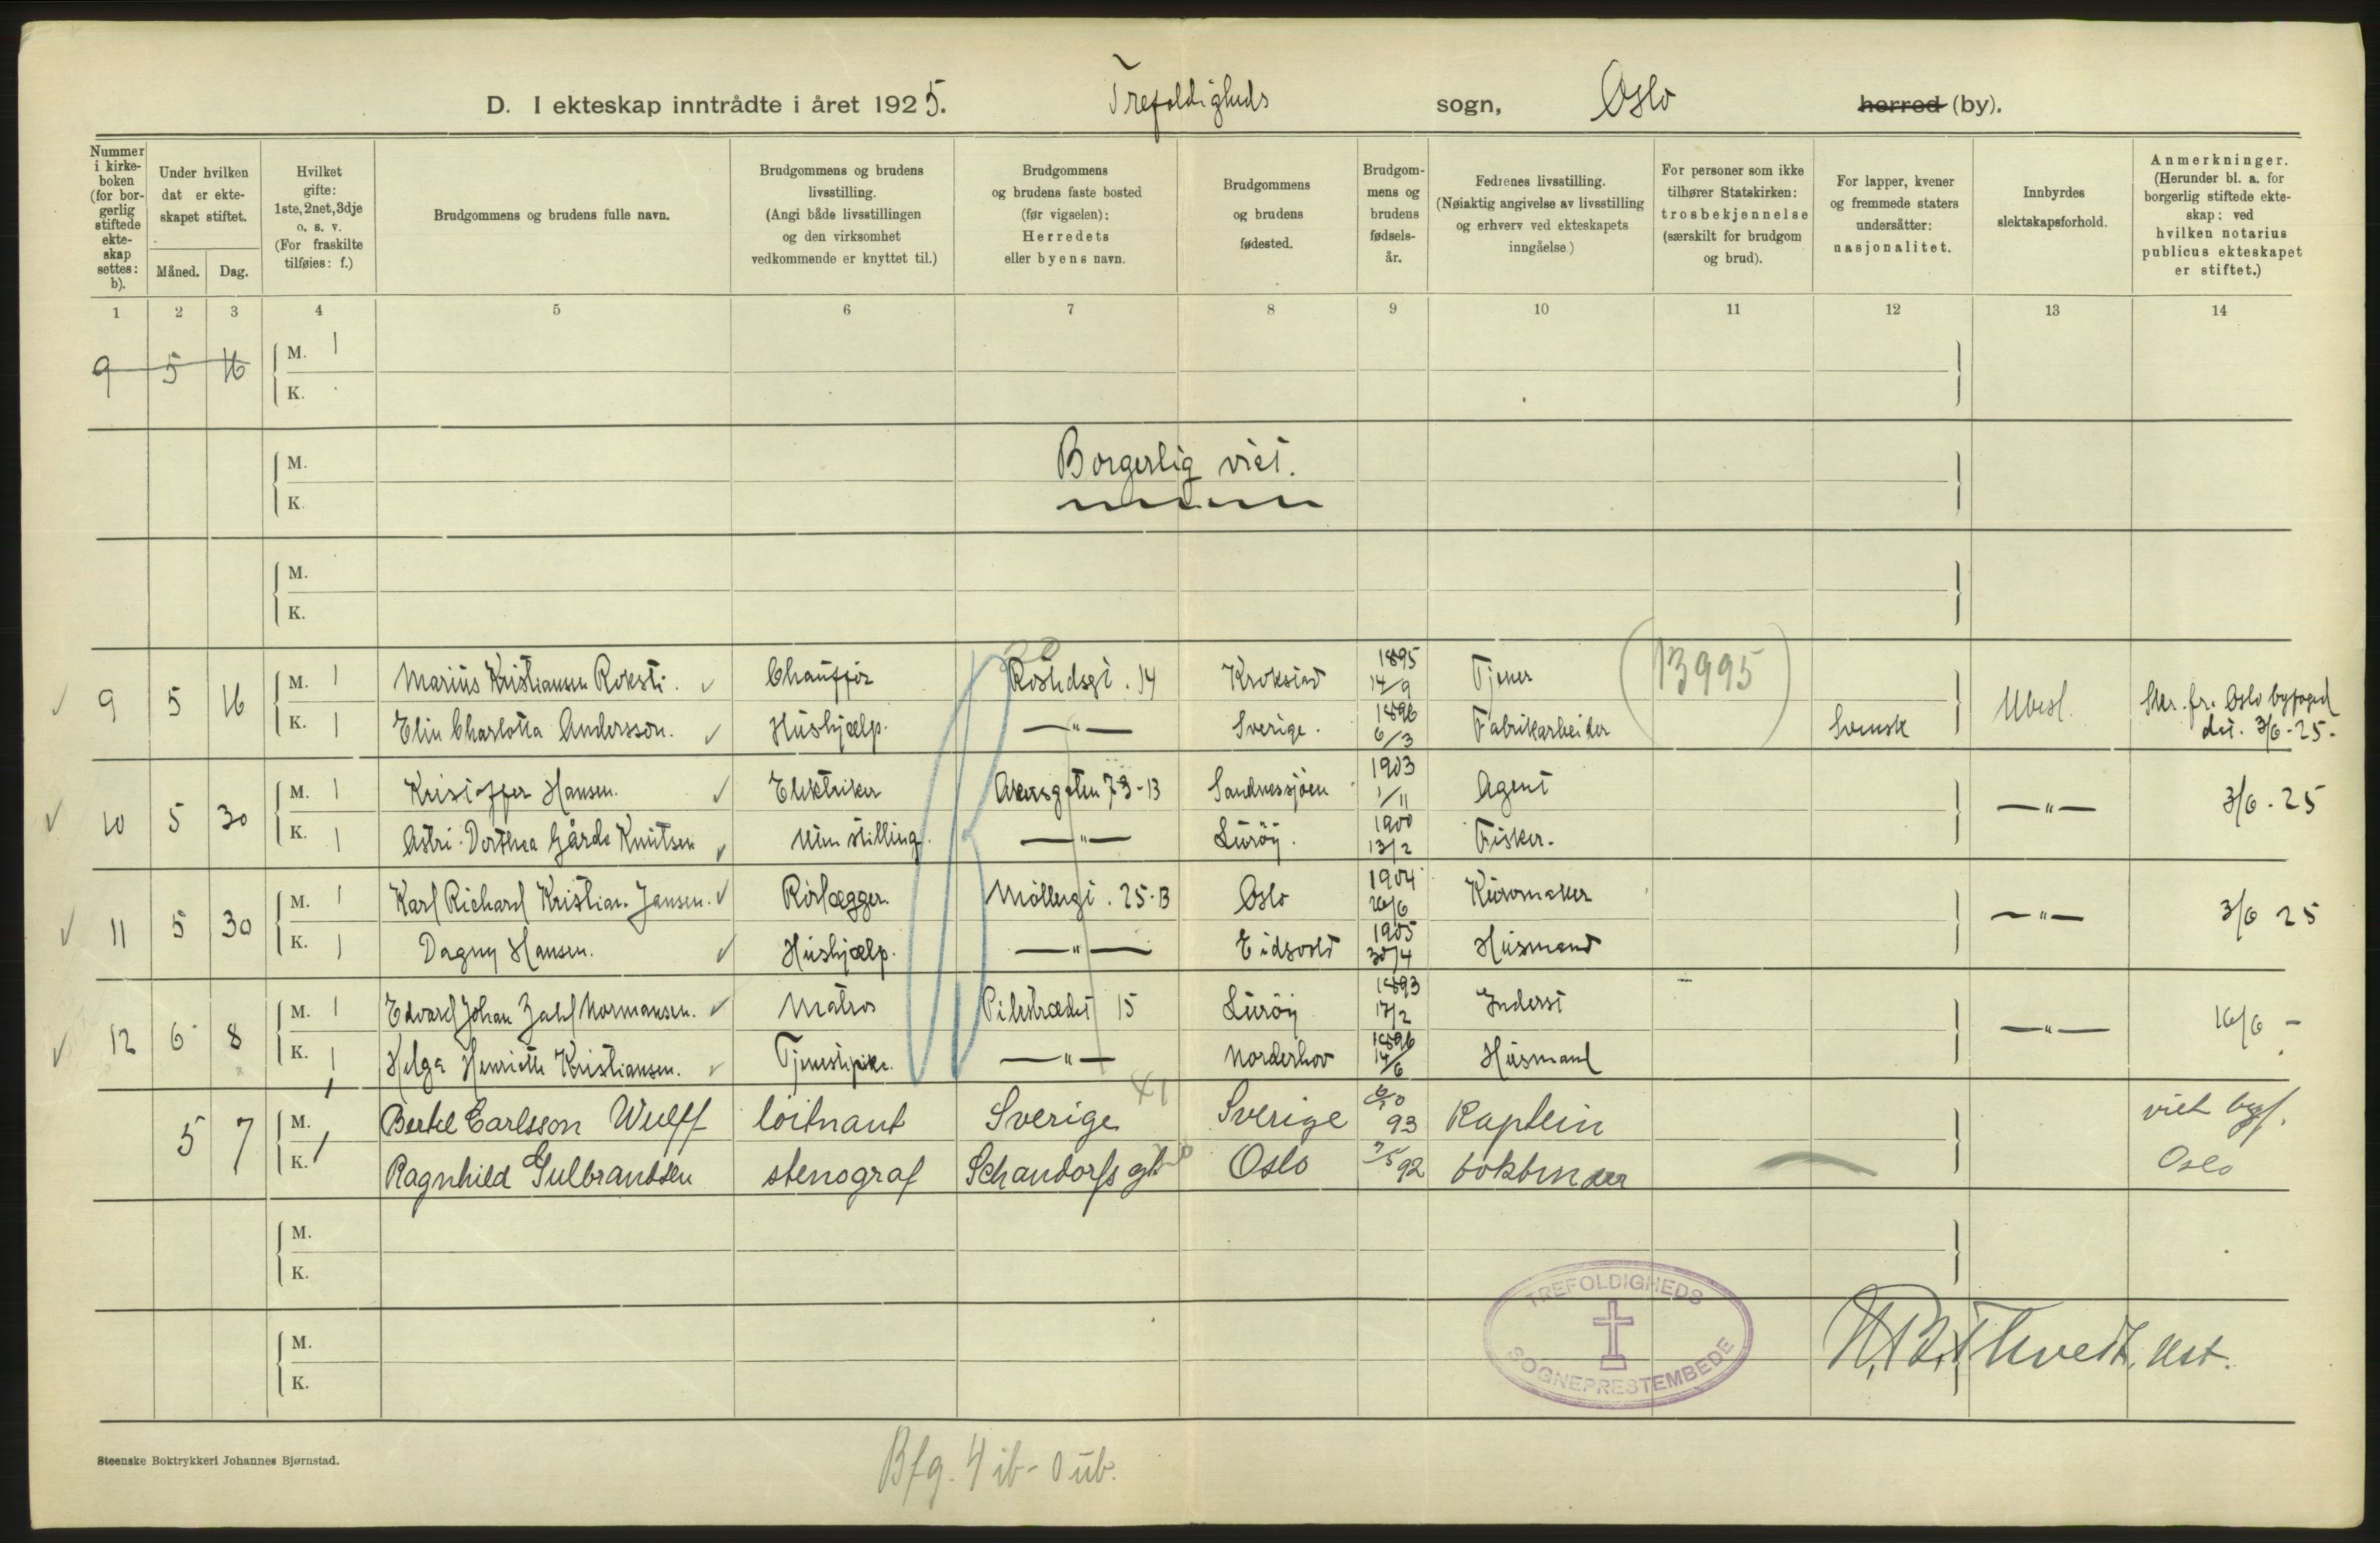 D. I ekteskap inntrådte i året 1925. Trefoldigheds sogn, Oslo herred (by).
Nummer i kirkeboken (for borgerlig stiftede ekteskap settes: b).
Under hvilken dat er ekteskapet stiftet.
Måned. Dag.
Hvilket gifte: 1ste, 2net, 3dje o. s. v. (For fraskilte tilføies: f.)
Brudgommens og brudens fulle navn.
Brudgommens og brudens livsstilling. (Angi både livsstillingen og den virksomhet vedkommende er knyttet til.)
Brudgommens og brudens faste bosted (før vigselen): Herredets eller byens navn.
Brudgommens og brudens fødested.
Brudgommens og brudens fødselsår.
Fedrenes livsstilling. (Nøiaktig angivelse av livsstilling og erhverv ved ekteskapets inngåelse.)
For personer som ikke tilhører Statskirken: trosbekjennelse (særskilt for brudgom og brud).
For lapper, kvener og fremmede staters undersåtter: nasjonalitet.
Innbyrdes slektskapsforhold.
Anmerkninger. (Herunder bl. a. for borgerlig stiftede ekteskap: ved hvilken notarius publicus ekteskapet er stiftet.)
1 2 3 4 5 6 7 8 9 10 11 12 13 14
9 5 16 M. 1
K.
M. Borgerlig viet.
K.
M.
K.
9 5 16 M. 1 Marius Kristiansen Roksti. Chauffør 14 1895 14/9 Tjener (13995) Ubesl.
K. 1 Elin Charlotta Andersson. Hushjælp. —"— Sverige. 1896 6/3 Fabrikarbeider Svensk Skr. fr. Oslo byfoged dat. 3/6-25.
10 5 30 M. 1 Kristoffer Hansen. Elektriker Akersgaten 73-B Sandnessjøen 1903 1/11 Agent —"— 3/6-25
K. 1 Astri Dorthea Gårda Knutsen Uten stilling. —"— Lurøy. 1900 13/2 Fisker.
11 5 30 M. 1 Karl Richard Kristian Jansen. Rørlægger. Møllergt. 25-B Oslo 1904 26/6 Kurvmaker —"— 3/6 25
K. 1 Dagny Hansen. Hushjælp. —"— Eidsvold 1905 30/4 Husmand
12 6 8 M. 1 Edvard Johan Zahl Normansen. Matros Pilestrædet 15 Lurøy 1893 17/2 Inderst —"— 16/6 -
K. 1 Helga Henriette Kristiansen. Tjenestepike. —"— Norderhov 1896 14/6 Husmand
5 7 M. 1 Bertel Carlsson Wulff løitnant Sverige 41 Sverige 93 Kaptein viet byf.
K. 1 Ragnhild Gulbrandsen stenograf Schandorfs gt Oslo 7/5 92 bokbinder Oslo
M.
K.
M.
K.
TREFOLDIGHEDS SOGNEPRESTEMBEDE
Steenske Boktrykkeri Johannes Bjørnstad.
Bfg. 4 ib - 0 ub.